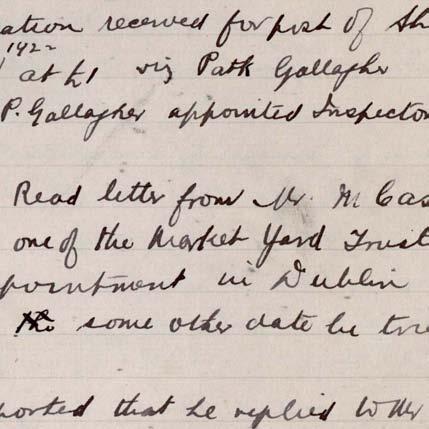 ation received for post of Sh
1922
at £1 viz Patk Gallagher
P. Gallagher appointed Inspector
Read letter from Mr. M Cas
one of the Market Yard Trust
pointment in Dublin
some other date be
ported that he replied to Mr